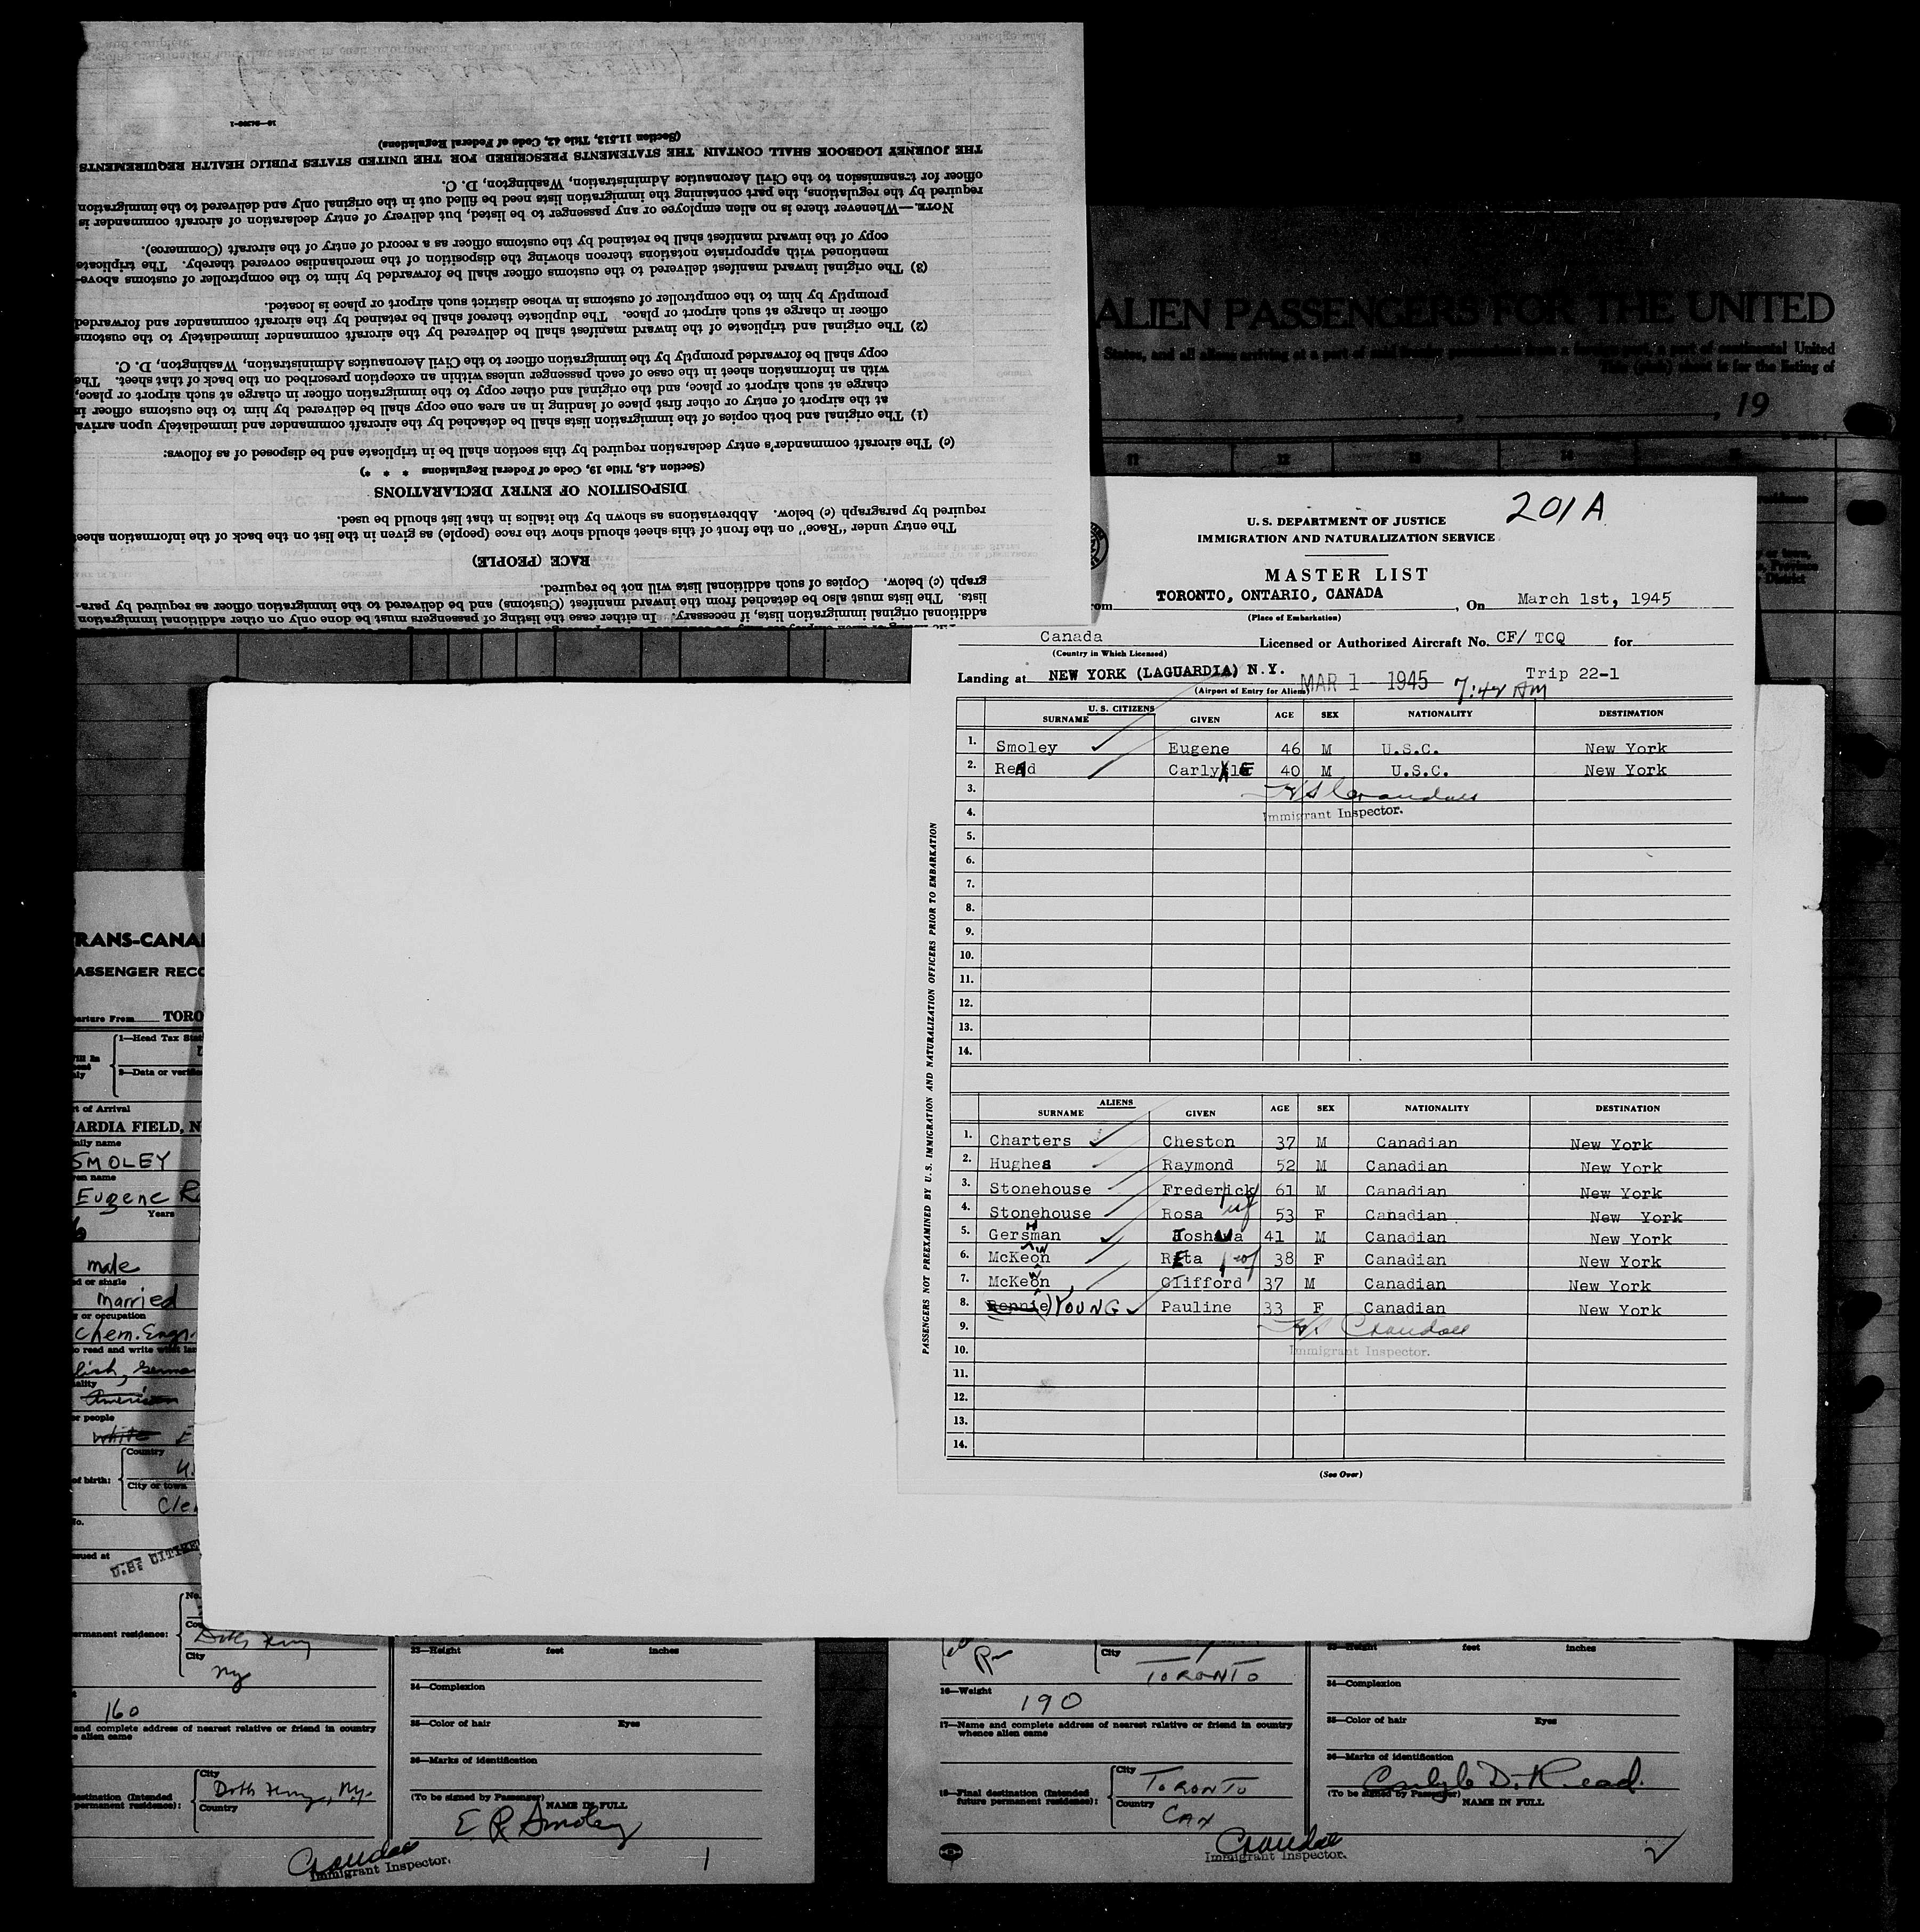 THE JOURNEY LOGBOOK SHALL CONTAIN THE STATEMENTS PRESCRIBED FOR THE UNITED STATES PUBLIC HEALTH REQUIREMENTS
(Section 11.513, Title 42, Code of Federal Regulations)
additional original immigration lists, if necessary. In either case the listing of passengers must be done only on other additional immigration
lists. The lists must also be detached from the inward manifest (Customs) and be delivered to the immigration officer as required by para-
graph (c) below. Copies of such additional lists will not be required.
RACE (PEOPLE)
The entry under "Race" on the front of this sheet should show the race (people) as given in the list on the back of the information sheet
required by paragraph (c) below. Abbreviations as shown by the italics in that list should be used.
DISPOSITION OF ENTRY DECLARATIONS
(Section 4.8, Title 19, Code of Federal Regulations * * *)
(c) The aircraft commander's entry declaration required by this section shall be in triplicate and be disposed of as follows:
(1) The original and both copies of the immigration lists shall be detached by the aircraft commander and immediately upon arrival
at the airport of entry or other first place of landing in an area one copy shall be delivered by him to the customs officer in
charge at such airport or place, and the original and other copy to the immigration officer in charge at such airport or place,
with an information sheet in the case of each passenger unless within an exception prescribed on the back of that sheet. The
copy shall be forwarded promptly by the immigration officer to the Civil Aeronautics Administration, Washington, D. C.
(2) The original and triplicate of the inward manifest shall be delivered by the aircraft commander immediately to the customs
officer in charge at such airport or place. The duplicate thereof shall be retained by the aircraft commander and forwarded
promptly by him to the comptroller of customs in whose district such airport or place is located.
(3) The original inward manifest delivered to the customs officer shall be forwarded by him to the comptroller of customs above-
mentioned with appropriate notations thereon showing the disposition of the merchandise covered thereby. The triplicate
copy of the inward manifest shall be retained by the customs officer as a record of entry of the aircraft (Commerce).
NOTE.—Whenever there is no alien employee or any passenger to be listed, but delivery of entry declaration of aircraft commander is
required by the regulations, the part containing the immigration lists need be filled out in the original only and delivered to the immigration
officer for transmission to the Civil Aeronautics Administration, Washington, D. C.
ALIEN PASSENGERS FOR THE UNITED
States, and all aliens arriving at a port of
a port of continental United
sheet is for the listing of
, 19
11 12 13 14
201A
U. S. DEPARTMENT OF JUSTICE
IMMIGRATION AND NATURALIZATION SERVICE
MASTER LIST
om TORONTO, ONTARIO, CANADA, On March 1st, 1945
(Place of Embarkation)
Canada Licensed or Authorized Aircraft No. CF/ TCQ for
(Country in Which Licensed)
Landing at NEW YORK (LAGUARDIA) N.Y. MAR 1 - 1945 7:42 AM Trip 22-1
(Airport of Entry for Aliens)
U. S. CITIZENS
SURNAME GIVEN AGE SEX NATIONALITY DESTINATION
1. Smoley Eugene 46 M U.S.C. New York
2. ReAd CarlylE 40 M U.S.C. New York
3. Crandall
4. Immigrant Inspector.
5.
6.
7.
8.
9.
10.
11.
12.
13.
14.
ALIENS
SURNAME GIVEN AGE SEX NATIONALITY DESTINATION
1. Charters Cheston 37 M Canadian New York
2. Hughes Raymond 52 M Canadian New York
3. Stonehouse Frederick 61 M Canadian New York
4. Stonehouse Rosa wf 53 F Canadian New York
5. Gersman H Joshua 41 M Canadian New York
6. McKeon w REta wf 38 F Canadian New York
7. McKeon w Clifford 37 M Canadian New York
8. Rennie) YOUNG Pauline 33 F Canadian New York
9. Crandall
10. Immigrant Inspector.
11.
12.
13.
14.
(See Over)
PASSENGERS NOT PREEXAMINED BY U.S. IMMIGRATION AND NATURALIZATION OFFICERS PRIOR TO EMBARKATION
RANS-CANA
ASSENGER RECO
arture From TORO
1—Head Tax Sta
2—Data or verifi
rt of Arrival
UARDIA FIELD, N
mily name
SMOLEY
en name
Eugene R
Years
6
male
d or single
married
r or occupation
Chem. Engr.
o read and write what lan
lish, German
ality
American
or people
White E
of birth:
Country
U.
City or town
Cle
No.
ssued at
U.S. CITIZE
No.
Cou
ermanent residence:
Dobbs Ferry
City
NY
160
and complete address of nearest relative or friend in country
e alien came
City
Dobbs Ferry, NY.
Country
destination (Intended
permanent residence):
33—Height feet inches
34—Complexion
35—Color of hair Eyes
36—Marks of identification
(To be signed by Passenger)
NAME IN FULL
E R Smoley
Crandall
Immigrant Inspector.
1
City
TORONTO
16—Weight
190
17—Name and complete address of nearest relative or friend in country
whence alien came
18—Final destination (Intended
future permanent residence):
City
TORONTO
Country
CAN
33—Height feet inches
34—Complexion
35—Color of hair Eyes
36—Marks of identification
Carlyle D. Read.
(To be signed by Passenger)
NAME IN FULL
Crandall
Immigrant Inspector.
2